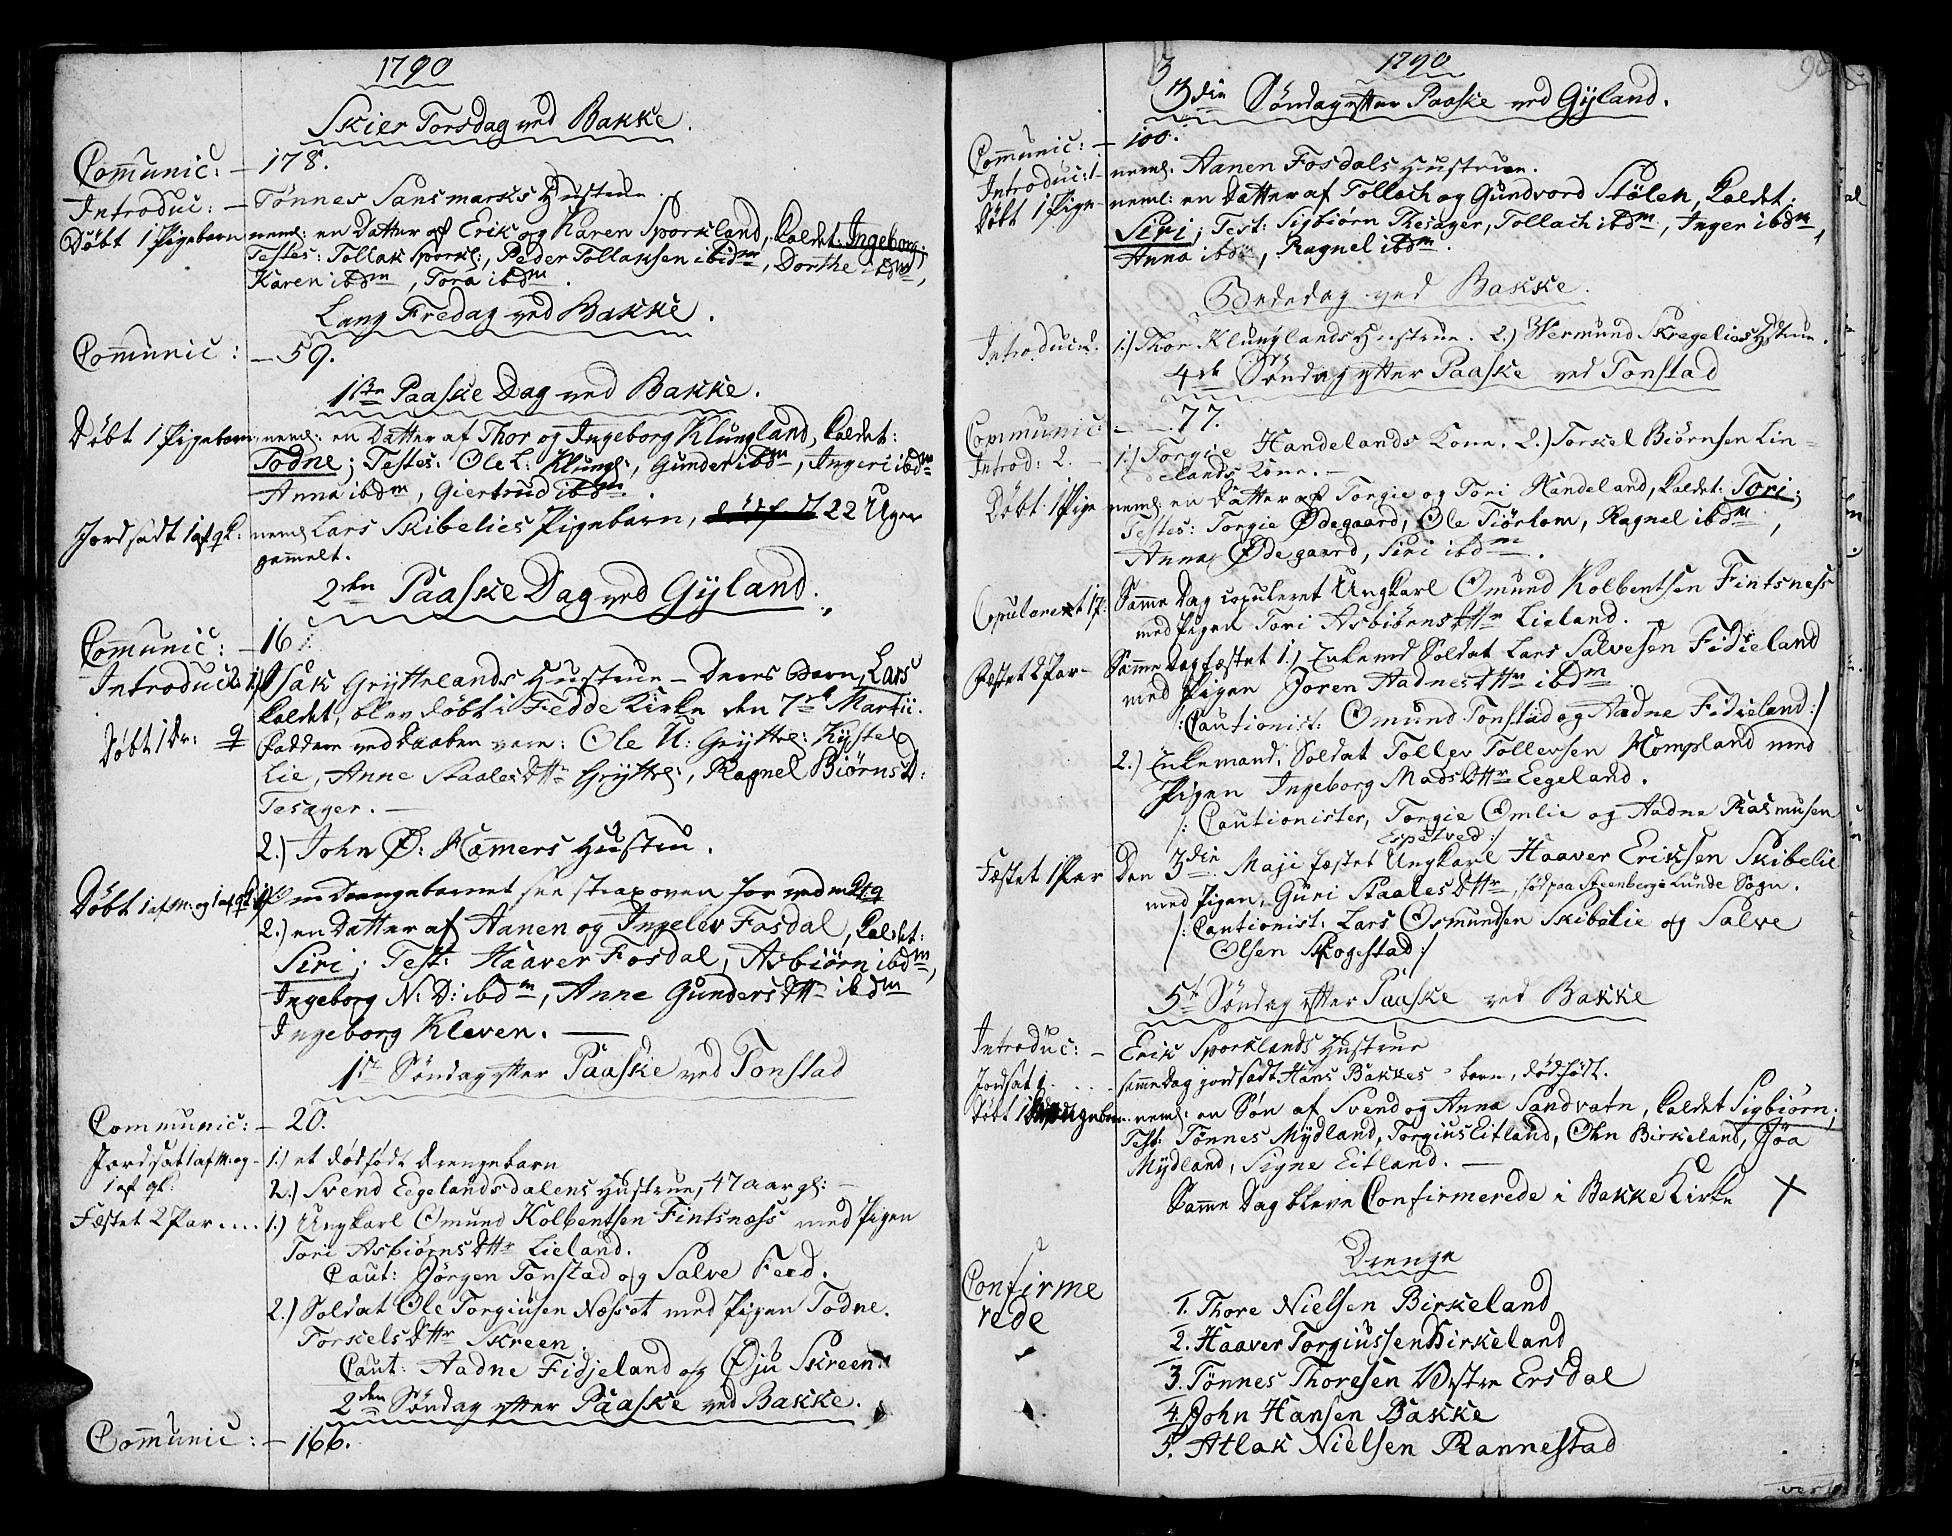 1790
Skier Torsdag ved Bakke.
Comunic: - 178.
Introduc: - Tønnes Sansmarks Hustrue.
Døbt 1 Pigebarn neml: en Datter af Erik og Karen Sporkland, kaldet: Ingeborg;
Testes: Tollak Sporkl:, Peder Tollaksen ibidm, Dorthe ibdm,
Karen ibdm, Tora ibdm.
Lang Fredag ved Bakke.
Comunic: - 59.
1ste Paaske Dag ved Bakke.
Døbt 1 Pigebarn, neml: en Datter af Thor og Ingeborg Klungland, kaldet:
Todne; Testes: Ole L: Klungl:, Gunder ibdm, Ingeri ibdm
Anna ibdm, Giertrud ibdm.
Jordsadt 1 af qk: neml: Lars Skibelies Pigebarn, 22 Uger
gammelt.
2den Paaske Dag ved Gyland.
Comunic: - 16
Introduc: 2. 1.) Isak Gryttelands Hustrue - Deres Barn, Lars
kaldet, blev døbt i Fedde Kirke den 7de Martii.
Døbt 1 Dr: Faddere ved Daaben vare: Ole N: Gryttel: Kystel
Lie, Anne Staalesdttr Gryttel:, Ragnel Biørns D:
Tesager. -
2.) John Ø: Hamers Hustru.
Døbt 1 af M: og 1 af qk: 1.) Om Drengebarnet see strax oven for ved
2.) en Datter af Aanen og Ingelev Fosdal, kaldet:
Siri; Test: Haaver Fosdal, Asbiørn ibdm,
Ingeborg N: D: ibdm, Anne Gundersdttr ibdm
Ingeborg Kleven. -
1ste Søndag efter Paaske ved Tonstad
Communic: - 20.
Jordsat 1 af M: og - 1.) et dødfødt Drengebarn
1 af qk: 2.) Svend Eegelandsdalens Hustrue, 47 aar gl: -
Fæstet 2 Par .... 1.) Ungkarl Omund Kolbentsen Fintsnæss med Pigen
Tori Asbiørnsdttr Lieland.
Caut: Jørgen Tonstad og Salve Feed.
2.) Soldat Ole Torgiusen Næsset med Pigen Todne
Torkelsdttr Skreen.
Caut: Aadne Fidjeland og Øju Skreen.
2den Søndag efter Paaske ved Bakke.
Comunic: - 166.
1790
3die Søndag efter Paaske ved Gyland.
Communic: - 100.
Introduc: 1 - neml: Aanen Fosdals Hustrue.
Døbt 1 Pige - neml: en Datter af Tollach og Gundvord Stølen, kaldet:
Siri; Test: Sigbiørn Thesager, Tollach ibdm, Inger ibdm,
Anna ibdm, Ragnel ibdm.
Bededag ved Bakke.
Introduc: 1.) Thor Klunglands Hustrue. 2.) Wermund Skregelies Hstrue.
4de Søndag efter Paaske ved Tonstad
Communic: - 77.
Introd: 2. - 1.) Torgie Handelands Kone. 2.) Torkel Biørnsen Lin-
delands Kone. -
Døbt 1 Pige neml: en Datter af Torgie og Tori Handeland, kaldet: Tori;
Testes: Torgie Ødegaard, Ole Tiørhom, Ragnel ibdm,
Anna Ødegaard, Siri ibdm.
Copuleret 1 P: Samme Dag copuleret Ungkarl Omund Kolbentsen Fintsness
med Pigen Tori Asbiørnsdttr Lieland.
Fæstet 2 Par - Samme Dag fæstet 1.) Enkemd Soldat Lars Salvesen Fidieland
med Pigen Joren Aadnesdttr ibdm
/: Cautionist: Omund Tonstad og Aadne Fidieland :/
2.) Enkemand: Soldat Tollev Tollevsen Hompland med
Pigen Ingeborg Madsdttr Eegeland.
/: Cautionister, Torgie Omlie og Aadne Rasmusen
Espetved :/
Fæstet 1 Par Den 3die Maji fæstet Ungkarl Haaver Eriksen Skibelie
med Pigen, Guri Staalesdttr, fød paa Steenberge Lunde Sogn.
/: Cautionist: Lars Osmundsen Skibelie og Salve
Olsen Skogestad :/
5te Søndag efter Paaske ved Bakke
Introduc: - Erik Sporklands Hustrue
Jordsat 1 .... samme Dag jordsadt Hans Bakkes - barn, dødfødt.
Døbt 1 neml: en Søn af Svend og Anna Sandvatn, kaldet Sigbiørn;
Test: Tønnes Mydland, Torgius Eitland, Ohn Birkeland, Jøa
Mydland, Signe Eitland. -
Samme Dag bleve Confirmerede i Bakke Kirke
Drenge
Confirme
rede
1. Thore Nielsen Birkeland
2. Haaver Torgiussen Birkeland
3. Tønnes Thoresen Østre Ersdal
4. John Hansen Bakke
5. Atlak Nielsen Rannestad